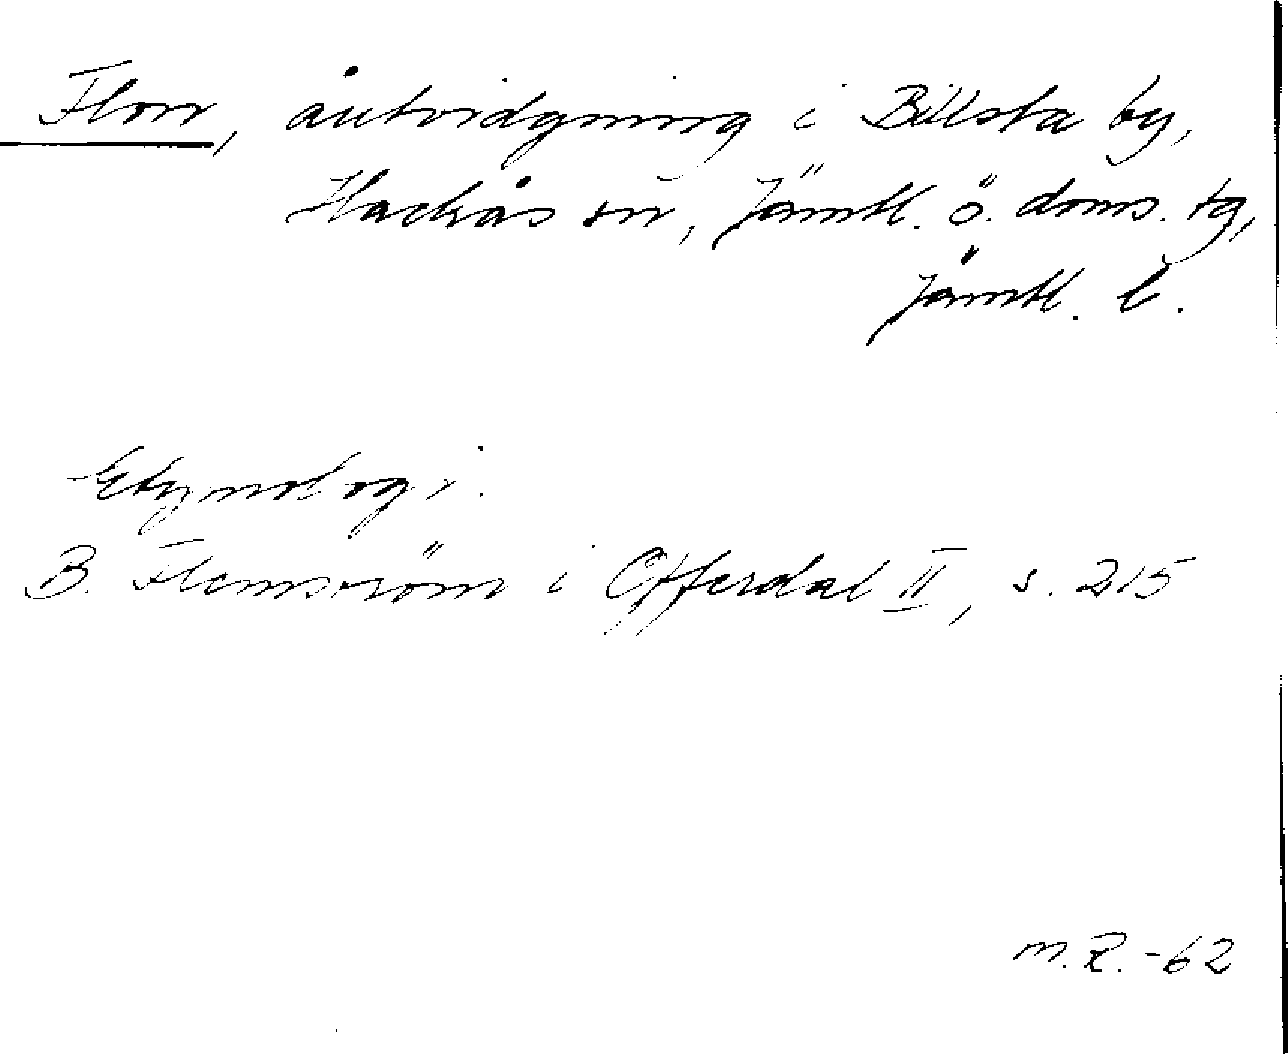 Florr, åutvidgning i Billsta by,
Hackås sn, Jämtl. ö. doms. tg,
Jämtl. l.
Etymologi.
B. Flemström i Offerdal II, s. 215
M.R.-62